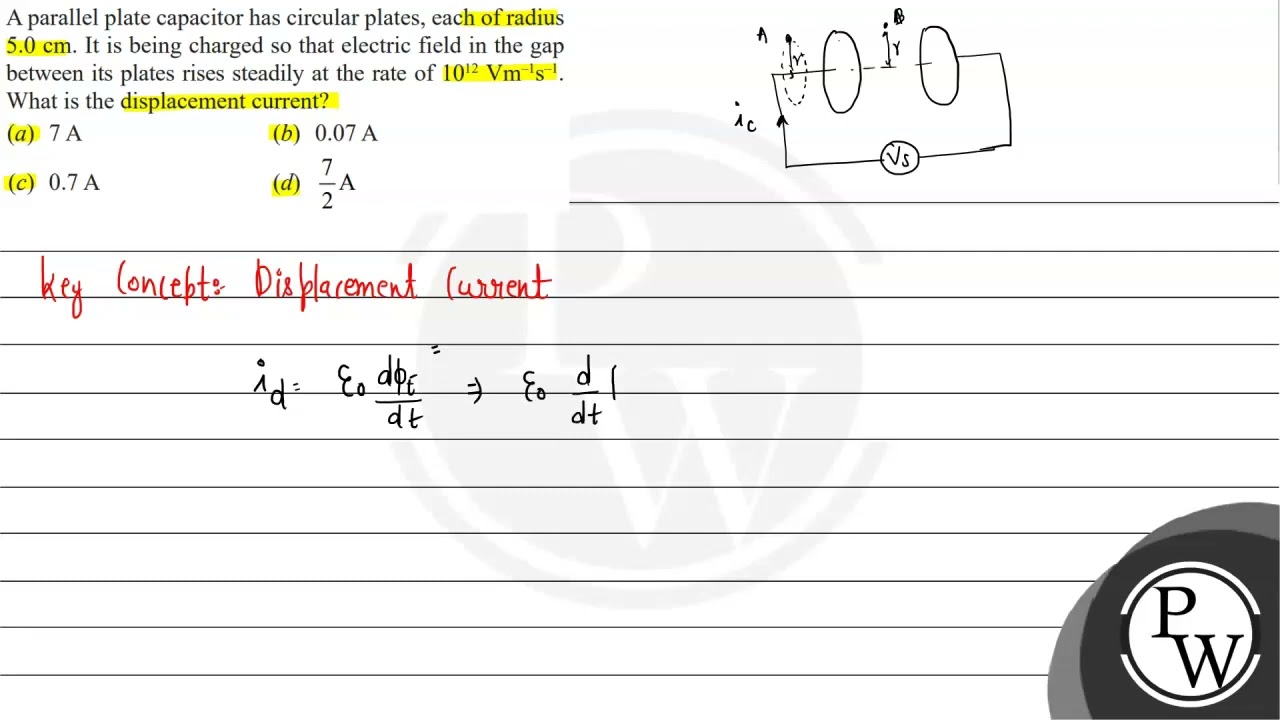 A parallel plate capacitor has circular plates, each of radius
5.0 cm. It is being charged so that electric field in the gap
between its plates rises steadily at the rate of 10¹² Vm⁻¹s⁻¹.
What is the displacement current?
(a) 7 A (b) 0.07 A
(c) 0.7 A (d) 7/2 A
A r B r
i_c
Vs
Key Concept:- Displacement Current
i_d = ε₀ dϕ_E/dt = ⇒ ε₀ d/dt (
P
W
P
W